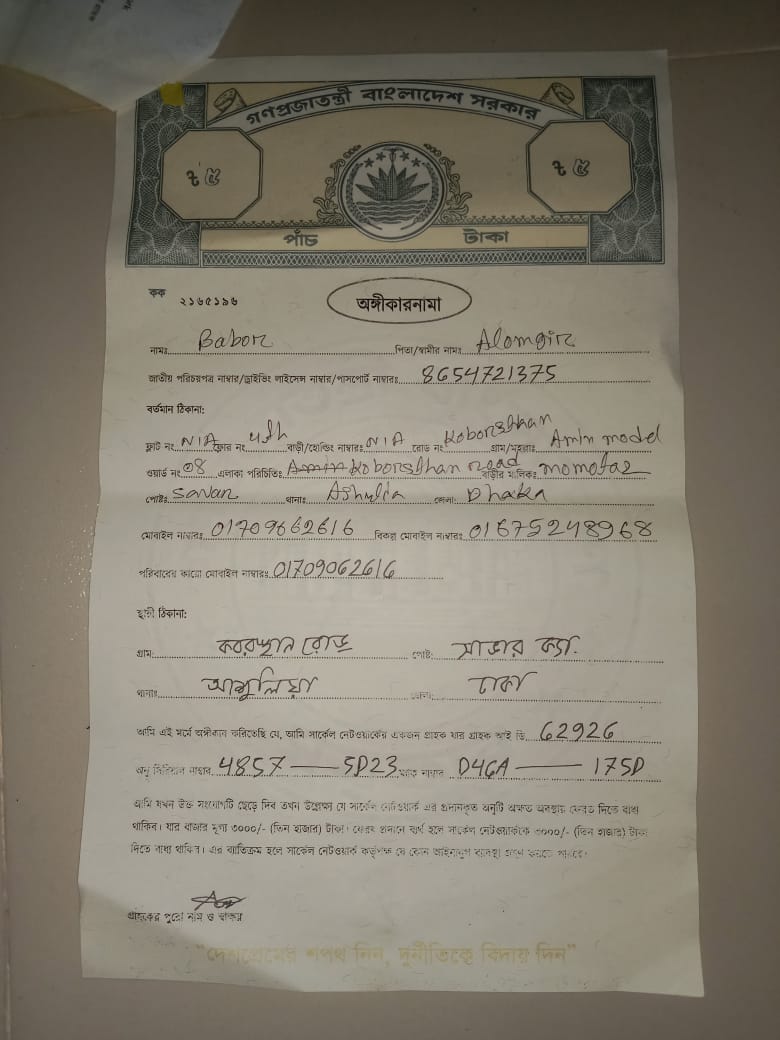 গণপ্রজাতন্ত্রী বাংলাদেশ সরকার
৳ ৫ ৳ ৫
পাঁচ টাকা
কক ২১৬৫১৯৬
অঙ্গীকারনামা
নামঃ Babor পিতা/স্বামীর নামঃ Alomgir
জাতীয় পরিচয়পত্র নাম্বার/ড্রাইভিং লাইসেন্স নাম্বার/পাসপোর্ট নাম্বারঃ 8654721375
বর্তমান ঠিকানা:
ফ্লাট নং N/A ফ্লোর নং 4th বাড়ী/হোল্ডিং নাম্বারঃ N/A রোড নং Koborsthan গ্রাম/মহল্লাঃ Amin model
ওয়ার্ড নং 08 এলাকা পরিচিতিঃ Koborsthan road বাড়ীর মালিকঃ momotaz
পোষ্টঃ savar থানাঃ Ashulia জেলা: Dhaka
মোবাইল নাম্বারঃ 01709662616 বিকল্প মোবাইল নাম্বারঃ 01675248968
পরিবারের কারো মোবাইল নাম্বারঃ 01709062616
স্থায়ী ঠিকানা:
গ্রাম: কবরস্থান রোড পোষ্ট: সাভার ক্যা.
থানাঃ আশুলিয়া জেলা: ঢাকা
আমি এই মর্মে অঙ্গীকার করিতেছি যে, আমি সার্কেল নেটওয়ার্কের একজন গ্রাহক যার গ্রাহক আই ডি 62926
অনু সিরিয়াল নাম্বার 4857 — 5D23 ম্যাক নাম্বার D46A — 175D
আমি যখন উক্ত সংযোগটি ছেড়ে দিব তখন উল্লেখ্য যে সার্কেল নেটওয়ার্ক এর প্রদানকৃত অনুটি অক্ষত অবস্থায় ফেরত দিতে বাধ্য
থাকিব। যার বাজার মূল্য ৩০০০/- (তিন হাজার) টাকা। ফেরৎ প্রদানে ব্যর্থ হলে সার্কেল নেটওয়ার্ককে ৩০০০/- (তিন হাজার) টাকা
দিতে বাধ্য থাকিব। এর ব্যতিক্রম হলে সার্কেল নেটওয়ার্ক কর্তৃপক্ষ যে কোন আইনানুগ ব্যবস্থা গ্রহণ করতে পারবে।
গ্রাহকের পুরো নাম ও স্বাক্ষর
"দেশপ্রেমের শপথ নিন, দুর্নীতিকে বিদায় দিন"